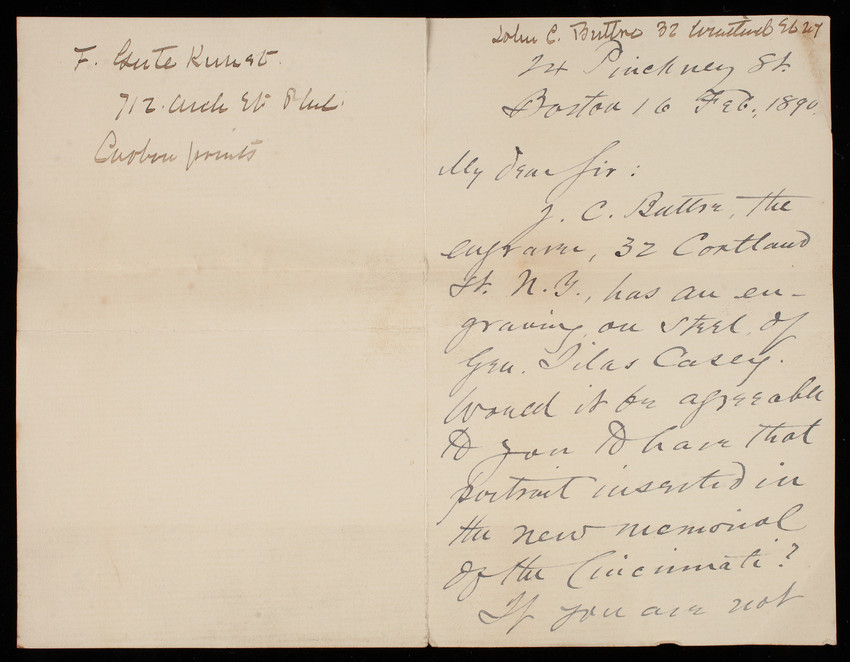 F. Gute Kunst.
712. Arch St Phil.
Carbon prints
John C. Buttre 32 Cortland St NY
24 Pinckney St.
Boston 16 Feb., 1890.
My dear Sir:
J. C. Buttre, the
engraver, 32 Cortland
St. N.Y., has an en-
graving on steel of
Gen. Silas Casey.
Would it be agreeable
to you to have that
portrait inserted in
the new memorial
of the Cincinnati?
If you are not